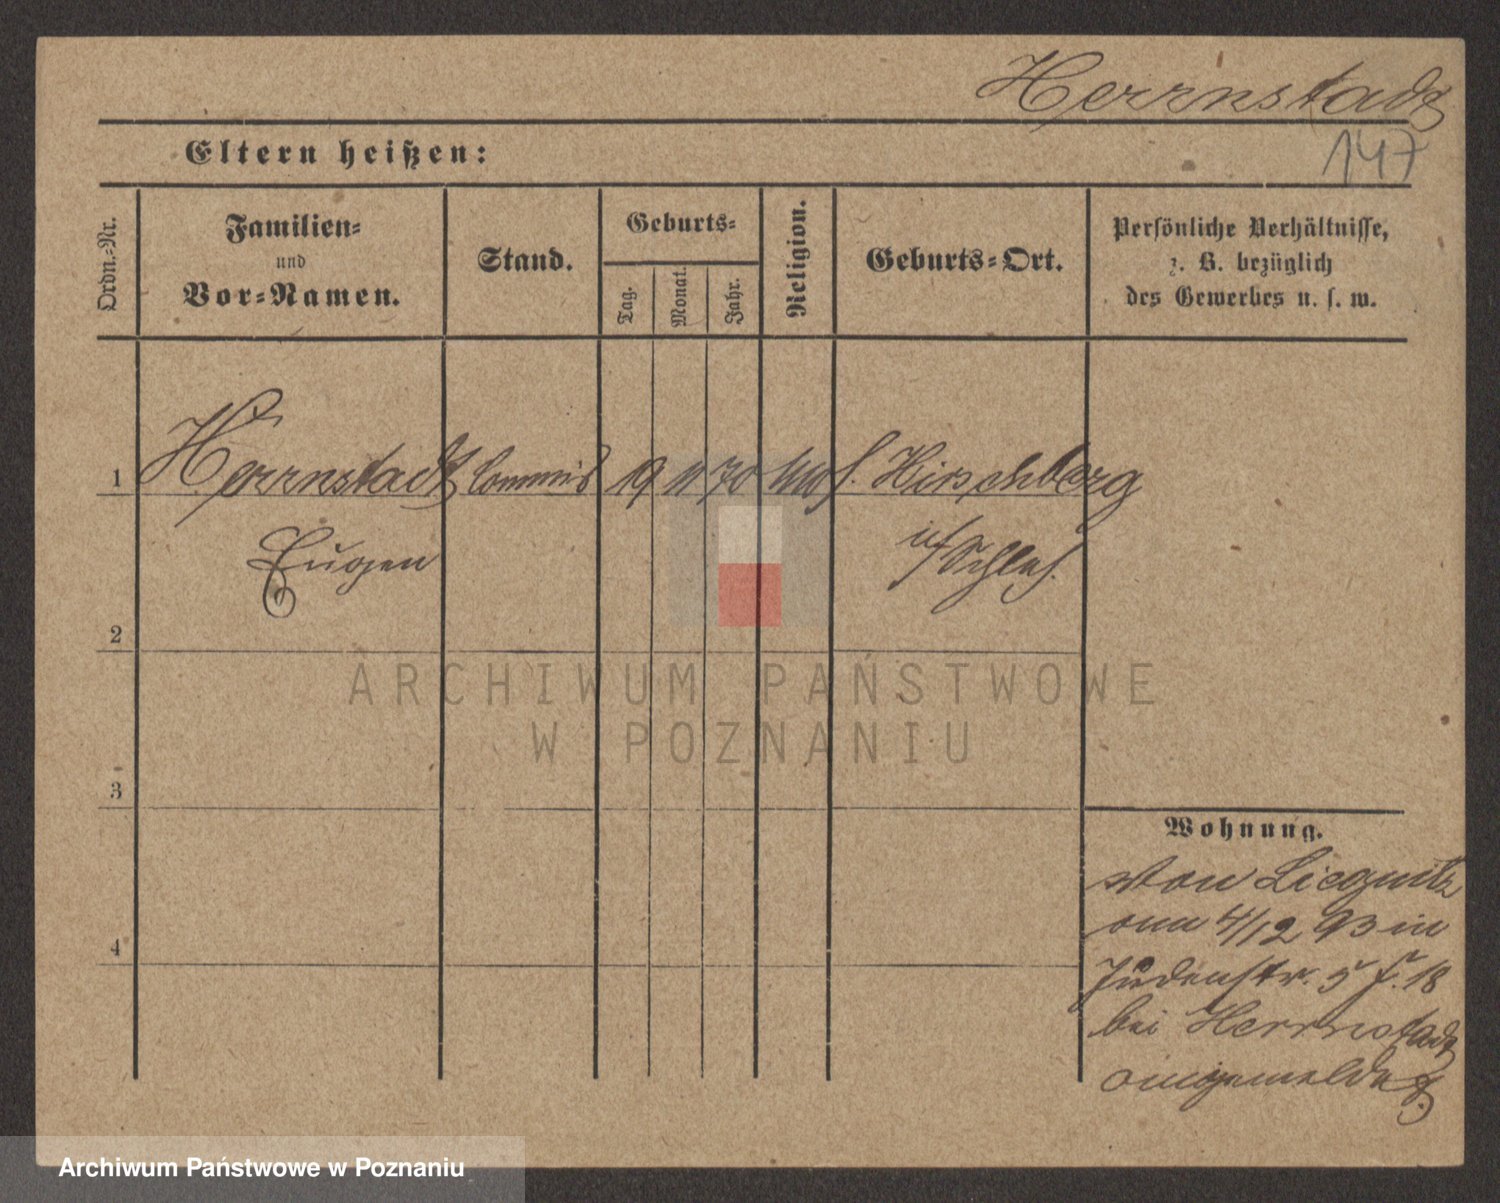 Herrnstadt
147
Eltern heißen:
Ordn.-Nr.
Familien-
und
Vor-Namen.
Stand.
Geburts-
Tag.
Monat.
Jahr.
Religion.
Geburts-Ort.
Persönliche Verhältnisse,
z. B. bezüglich
des Gewerbes u. s. w.
1 Herrnstadt Commis 19 11 70 mos. Hirschberg
Eugen i/Schles.
2
3
4
Wohnung.
von Liegnitz
am 4/12 93 in
Judenstr. 5 f. 18
bei Herrnstadt
angemeldet.
ARCHIWUM PAŃSTWOWE
W POZNANIU
Archiwum Państwowe w Poznaniu